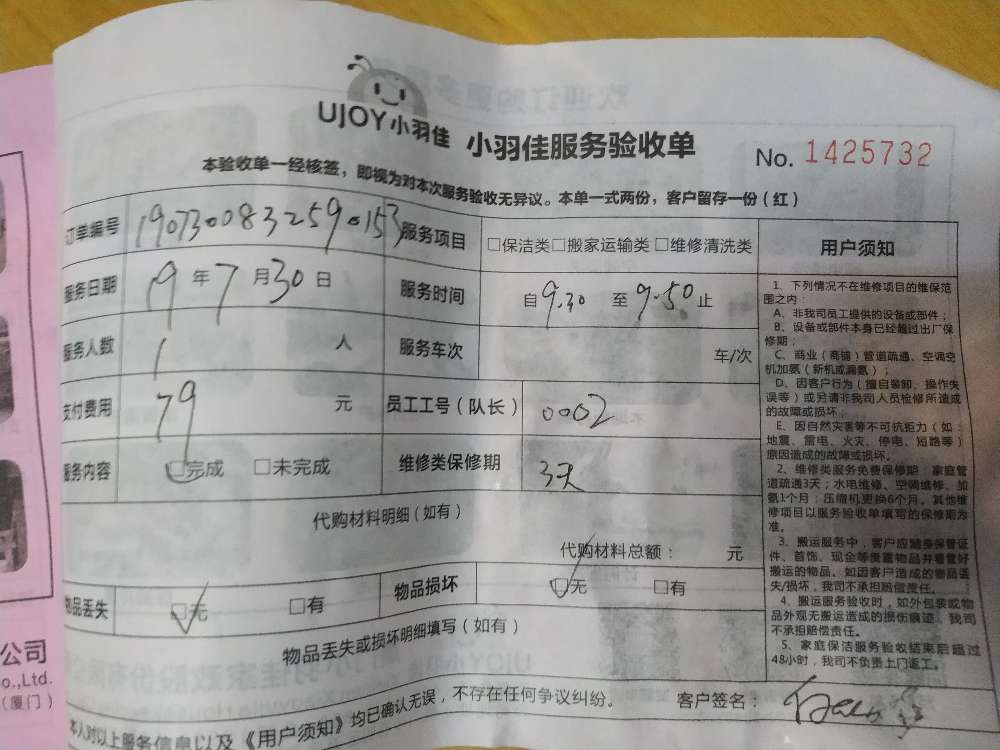 UJOY小羽佳
小羽佳服务验收单
No. 1425732
本验收单一经核签，即视为对本次服务验收无异议。本单一式两份，客户留存一份（红）
订单编号 1907300832590153 服务项目 □保洁类□搬家运输类□维修清洗类 用户须知
服务日期 19年7月30日 服务时间 自9.30至9.50止
服务人数 1人 服务车次 车/次
支付费用 79元 员工工号（队长） 0002
服务内容 □完成 □未完成 维修类保修期 3天
代购材料明细（如有）
代购材料总额： 元
物品丢失 □无 □有 物品损坏 □无 □有
物品丢失或损坏明细填写（如有）
本人对以上服务信息以及《用户须知》均已确认无误，不存在任何争议纠纷。
客户签名：
1、下列情况不在维修项目的维保范
围之内：
A、非我司员工提供的设备或部件；
B、设备或部件本身已经超过出厂保
修期；
C、商业（商铺）管道疏通、空调空
机加氨（新机或漏氨）；
D、因客户行为（擅自装卸、操作失
误等）或另请非我司人员检修所造成
的故障或损坏；
E、因自然灾害等不可抗拒力（如：
地震、雷电、火灾、停电、短路等）
原因造成的故障或损坏。
2、维修类服务免费保修期：家庭管
道疏通3天；水电维修、空调维修、加
氨1个月；压缩机更换6个月。其他维
修项目以服务验收单填写的保修期为
准。
3、搬运服务中，客户应随身保管证
件、首饰、现金等贵重物品并看管好
搬运的物品。如因客户造成的物品丢
失/损坏，我司不承担赔偿责任。
4、搬运服务验收时，如外包装或物
品外观无搬运造成的损伤痕迹，我司
不承担赔偿责任。
5、家庭保洁服务验收结束后超过
48小时，我司不负责上门返工。
公司
o.,Ltd.
（厦门）